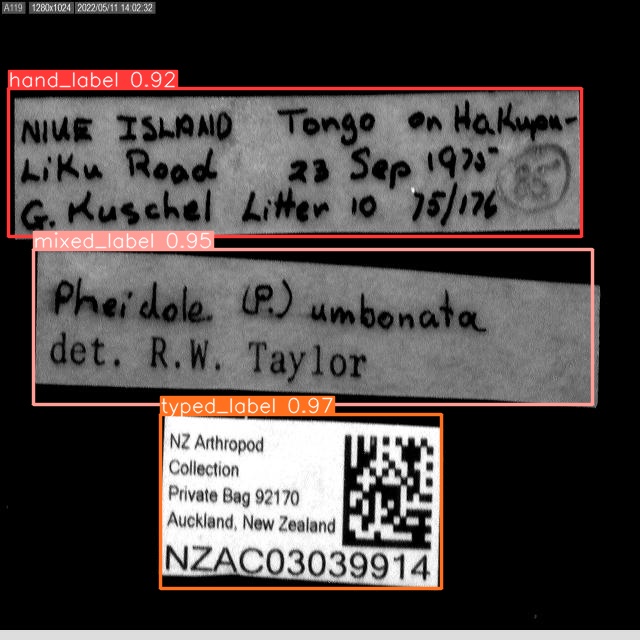 A119 1280x1024 2022/05/11 14:02:32
hand_label 0.92
NIUE ISLAND Tongo on Hakupu-
Liku Road 23 Sep 1975
G. Kuschel Litter 10 75/176
85
mixed_label 0.95
Pheidole (P.) umbonata
det. R.W. Taylor
typed_label 0.97
NZ Arthropod
Collection
Private Bag 92170
Auckland, New Zealand
NZAC03039914